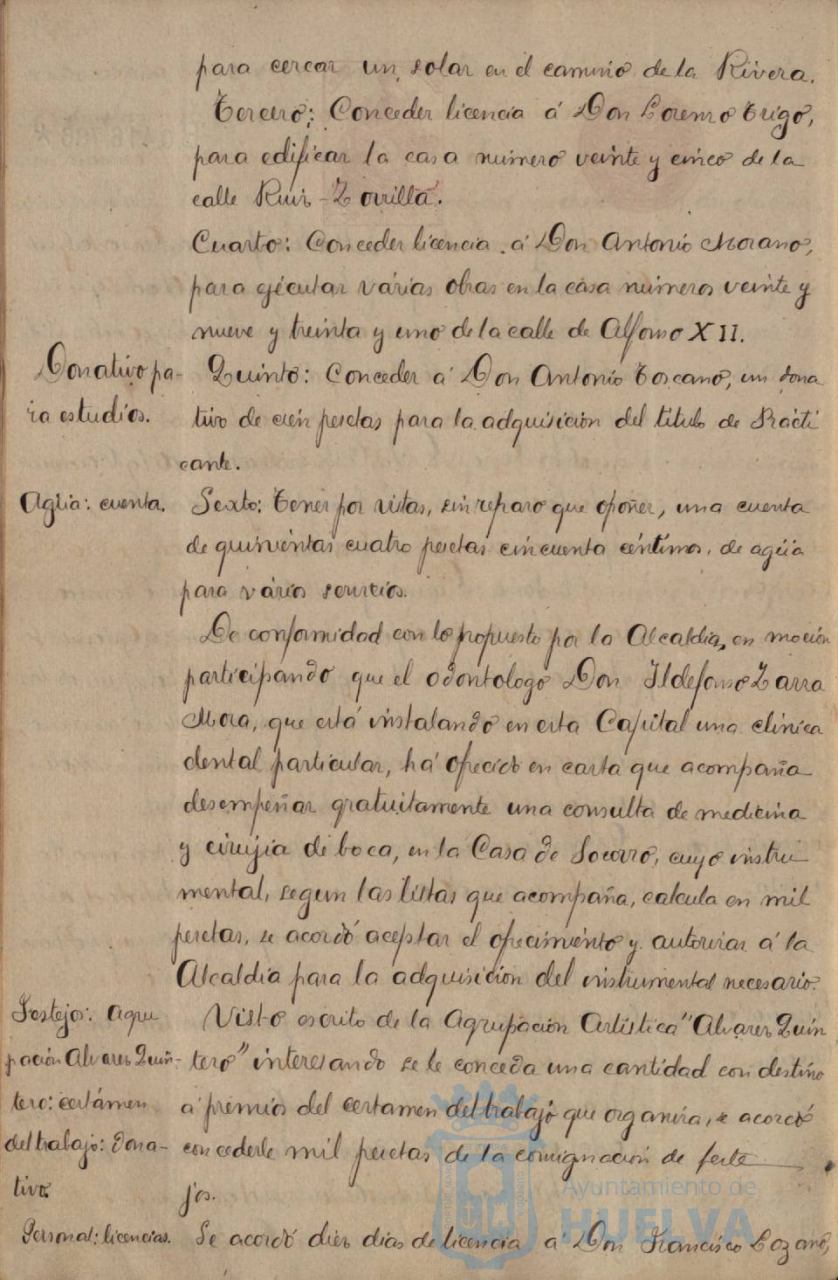 para cercar un solar en el camino de la Rivera.
Tercero: Conceder licencia á Don Lorenzo Trigo,
para edificar la casa número veinte y cinco de la
calle Ruiz-Zorrilla.
Cuarto: Conceder licencia á Don Antonio Morano,
para ejecutar várias obras en la casa números veinte y
nueve y treinta y uno de la calle de Alfonso XII.
Donativo pa-
ra estudios.
Quinto: Conceder á Don Antonio Toscano, un dona
tivo de cien pesetas para la adquisición del titulo de Practi
cante.
Agüa: cuenta.
Sexto: Tener por vistas, sin reparo que oponer, una cuenta
de quinientas cuatro pesetas cincuenta céntimos, de agüa
para vários servicios.
De conformidad con lo propuesto por la Alcaldía, en moción
participando que el odontologo Don Ildefonso Zarra
Mora, que está instalando en esta Capital una clínica
dental particular, há ofrecido en carta que acompaña
desempeñar gratuitamente una consulta de medicina
y cirujía de boca, en la Casa de Socorro, cuyo instru
mental, segun las listas que acompaña, calcula en mil
pesetas, se acordó aceptar el ofrecimiento y autorizar á la
Alcaldía para la adquisición del instrumental necesario.
Festejos: Agru
pación Alvarez Quin-
tero: certámen
del trabajo: dona-
tivo
Visto escrito de la Agrupación Artística "Alvarez Quin
tero" interesando se le conceda una cantidad con destino
a premios del certamen del trabajo que organiza, se acordó
concederle mil pesetas de la consignación de feste
jos.
Personal: licencias.
Se acordó diez dias de licencia á Don Francisco Lozano,
Ayuntamiento de
HUELVA